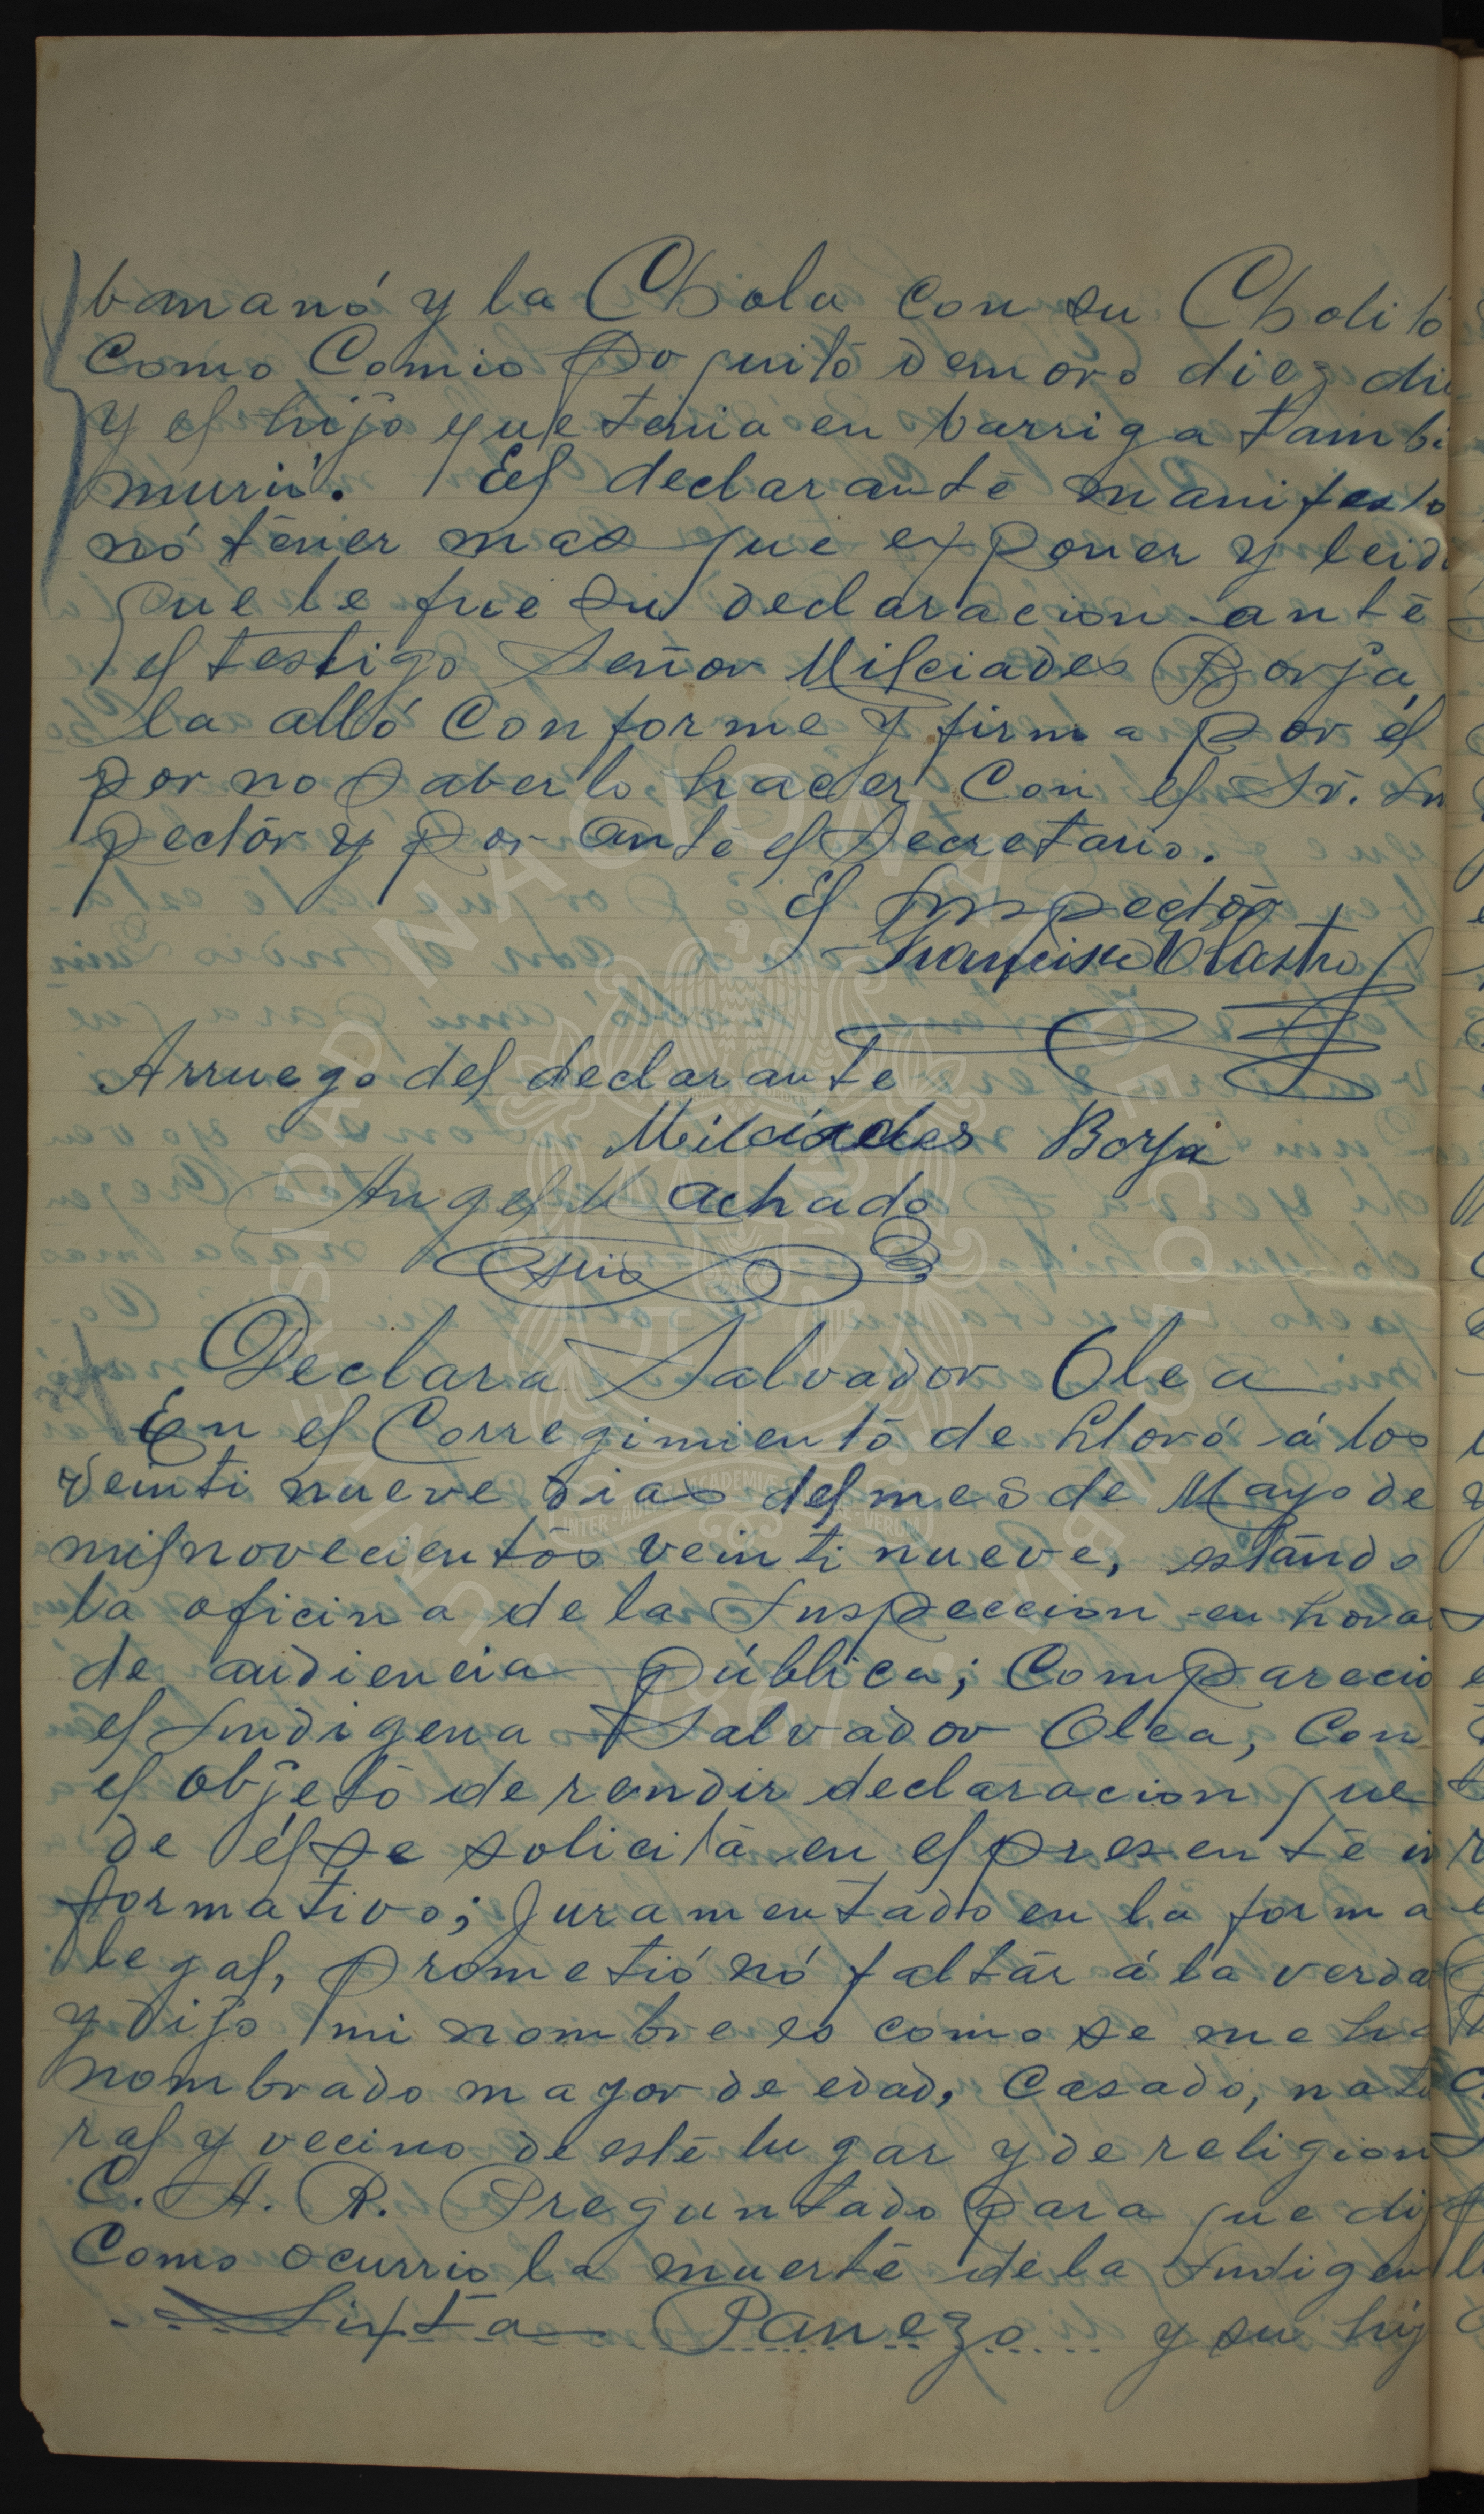 bananó y la Chola con su Cholito
Como Comio Poquitó demoro diez di
y el hijo que tenia en barriga tambi
murió. El declaranté manifesto
nó téner mas que exponer y leido
que le fue su declaracion anté
el testigo Señor Milciades Borja,
la alló Conforme y firma por él
por no saberlo hacer Con el Sr. Ins
pectór y por anté el Secretario.
El Inspectór
Francisco Castro
Arruego del declarante
Milciades Borja
Angel Machado
Srio
Declara Salvador Olea
En el Corregimientó de Lloró á los
veinti nueve dias del mes de Mayo de
mil novecientós veinti nueve, estándo
la oficina de la Inspeccion en hora
de audiencia pública; Comparecio
el Indigena Salvador Olea, Con
el objetó de rendir declaracion que
de él se solicitá en el presenté in
formativo; Juramentado en la forma
legal, prometió nó faltár á la verda
y dijo mi nombre es como se me ha
nombrado mayor de edad, Casado, natu
ral y vecino de esté lugar y de religion
C. A. R. Preguntado para que dij
Como ocurrio la muerté de la Indigen
Sixta Panezo y su hij
UNIVERSIDAD NACIONAL DE COLOMBIA
INTER AULAS ACADEMIÆ QUÆRE VERUM